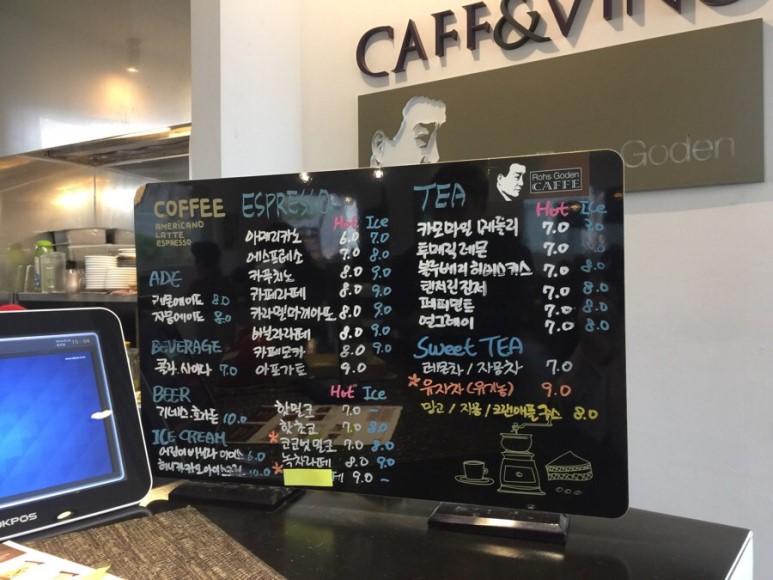 CAFF&VINO
Goden
Rohs Goden
CAFFE
COFFEE
AMERICANO
LATTE
ESPRESSO
ESPRESSO
Hot Ice
아메리카노 6.0 7.0
에스프레소 7.0 8.0
카푸치노 8.0 9.0
카페라떼 8.0 9.0
카라멜마끼아또 8.0 9.0
바닐라라떼 8.0 9.0
카페모카 8.0 9.0
아포가토 9.0
Hot Ice
핫밀크 7.0 -
핫초코 7.0 8.0
*코코넛밀크 7.0 8.0
*녹차라떼 8.0 9.0
페 9.0 -
ADE
레몬에이드 8.0
자몽에이드 8.0
BEVERAGE
콜라, 사이다 7.0
BEER
기네스, 호가든 10.0
ICE CREAM
6.0
10.0
TEA
Hot Ice
카모마일 7.0
투메릭레몬 7.0 8.0
블루베리 히비스커스 7.0 8.0
탠저린진저 7.0 8.0
페퍼민트 7.0 8.0
얼그레이 7.0 8.0
Sweet TEA
레몬차 / 자몽차 7.0
*유자차 (유기농) 9.0
망고 / 자몽 / 크랜애플주스 8.0
OKPOS